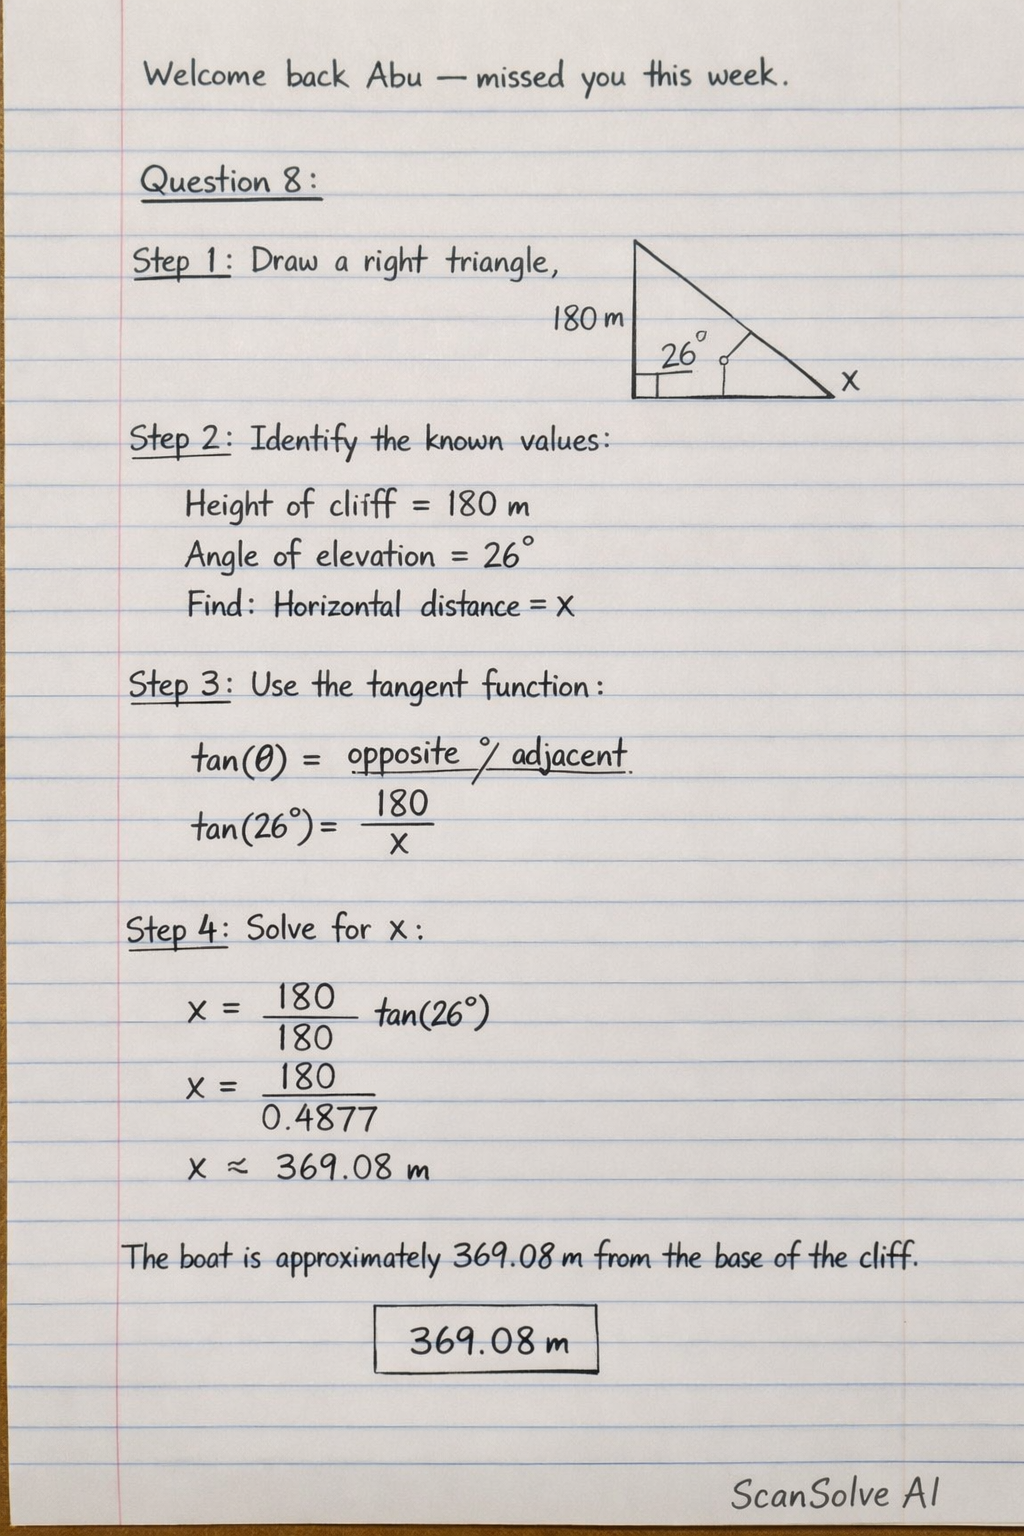 Welcome back Abu — missed you this week.
Question 8:
Step 1: Draw a right triangle,
180 m
26°
x
Step 2: Identify the known values:
Height of cliff = 180 m
Angle of elevation = 26°
Find: Horizontal distance = x
Step 3: Use the tangent function:
tan(θ) = opposite / adjacent
tan(26°) = 180
x
Step 4: Solve for x:
x = 180 tan(26°)
180
x = 180
0.4877
x ≈ 369.08 m
The boat is approximately 369.08 m from the base of the cliff.
369.08 m
ScanSolve AI